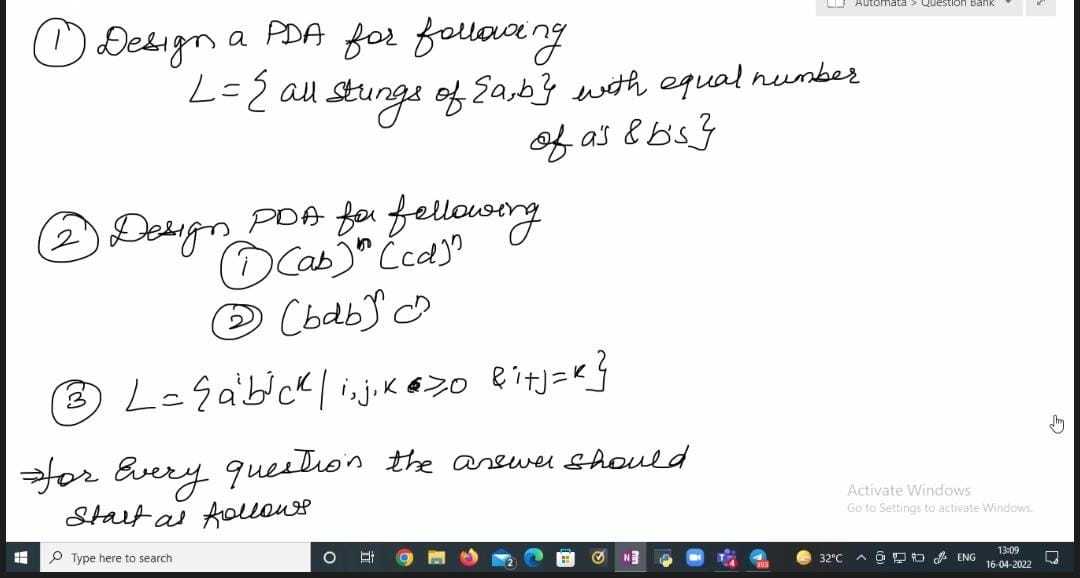 Automata > Question Bank
① Design a PDA for following
L = { all strings of {a,b} with equal number
of a's & b's}
② Design PDA for following
① (ab)ⁿ (cd)ⁿ
② (bdb)ⁿ cⁿ
③ L = {aⁱbʲcᴷ | i,j,K ≥0 & i+j=K}
⇒ for Every question the answer should
Start as follows
Activate Windows
Go to Settings to activate Windows.
Type here to search
2
N
T
4
393
32°C
ENG
13:09
16-04-2022